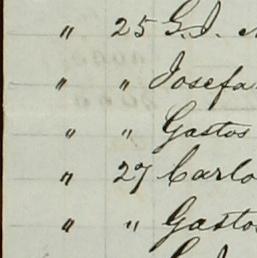 " 25 G. J.
" " Josefa
" " Gastos
" 27 Carlo
" " Gastos